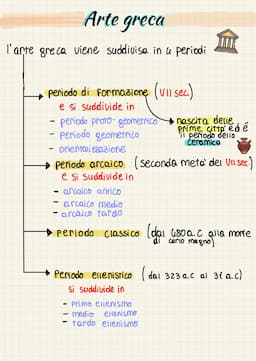 Arte greca
l'arte greca viene suddivisa in 4 periodi
periodo di Formazione (VII sec)
e si suddivide in
- periodo proto-geometrico
- periodo geometrico
- orientalizzazione
nascita delle
prime città ed é
il periodo della
ceramica
periodo arcaico (seconda metà del VII sec)
e si suddivide in
- arcaico antico
- arcaico medio
- arcaico tardo
periodo classico (dal 480 a.C alla morte
di carlo magno)
Periodo ellenistico (dal 323 a.C al 31 a.c)
si suddivide in
- primo ellenismo
- medio ellenismo
- tardo ellenismo